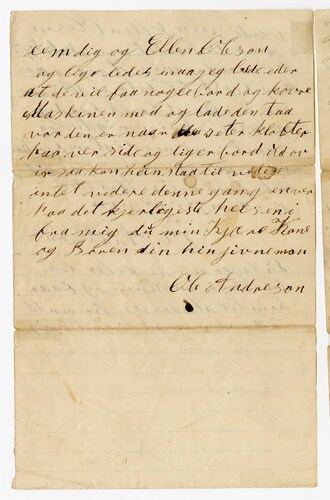 em dig og Ellen Olson
og lige ledes maa jeg bede eder
at de vil faa nogle bord og kovre
Maskinen med og lade den taa
vor den er naar
faa ver side og liger bord
i saa kan han staa til
intet videre denne gang enver
faa det kjerligeste helsen i
fra mig du min Kjære Kone
og Børen din hin jivne man
Ole Andreson